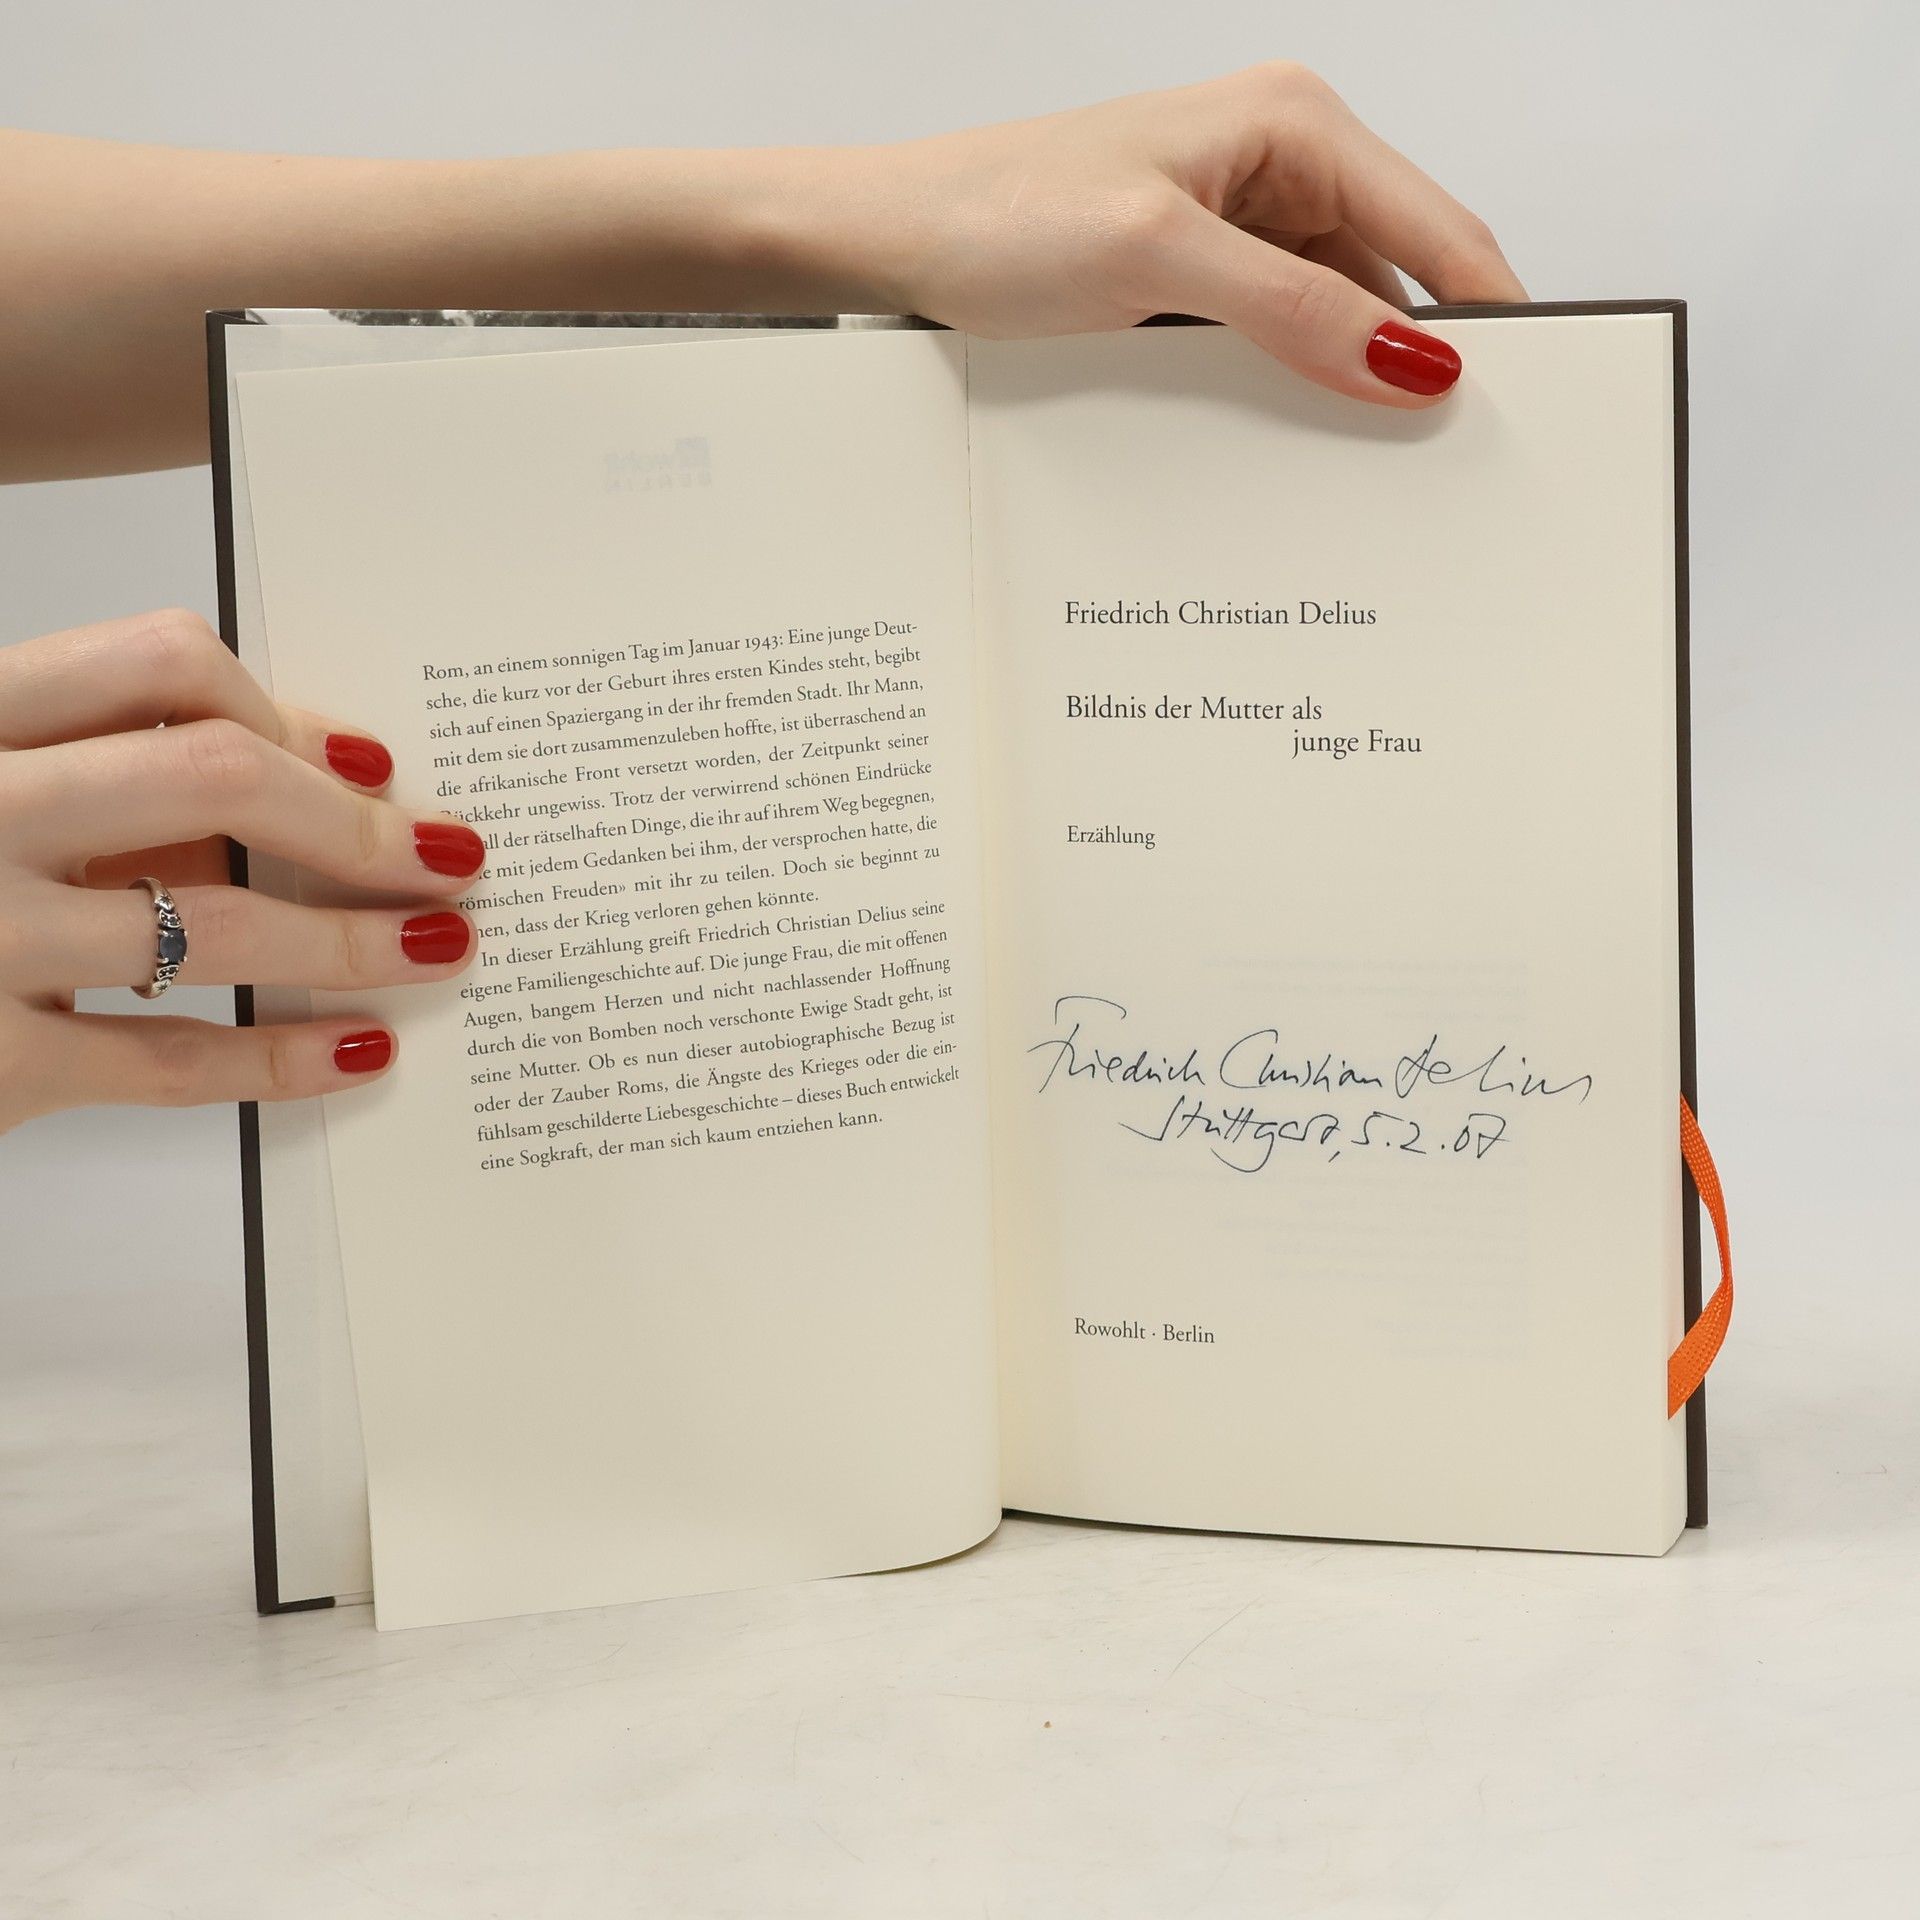 Rom, an einem sonnigen Tag im Januar 1943: Eine junge Deut-
sche, die kurz vor der Geburt ihres ersten Kindes steht, begibt
sich auf einen Spaziergang in der ihr fremden Stadt. Ihr Mann,
mit dem sie dort zusammenzuleben hoffte, ist überraschend an
die afrikanische Front versetzt worden, der Zeitpunkt seiner
ückkehr ungewiss. Trotz der verwirrend schönen Eindrücke
all der rätselhaften Dinge, die ihr auf ihrem Weg begegnen,
mit jedem Gedanken bei ihm, der versprochen hatte, die
römischen Freuden» mit ihr zu teilen. Doch sie beginnt zu
nen, dass der Krieg verloren gehen könnte.
In dieser Erzählung greift Friedrich Christian Delius seine
eigene Familiengeschichte auf. Die junge Frau, die mit offenen
Augen, bangem Herzen und nicht nachlassender Hoffnung
durch die von Bomben noch verschonte Ewige Stadt geht, ist
seine Mutter. Ob es nun dieser autobiographische Bezug ist
oder der Zauber Roms, die Ängste des Krieges oder die ein-
fühlsam geschilderte Liebesgeschichte – dieses Buch entwickelt
eine Sogkraft, der man sich kaum entziehen kann.
Friedrich Christian Delius
Bildnis der Mutter als
junge Frau
Erzählung
Friedrich Christian Delius
Stuttgart, 5.2.07
Rowohlt · Berlin